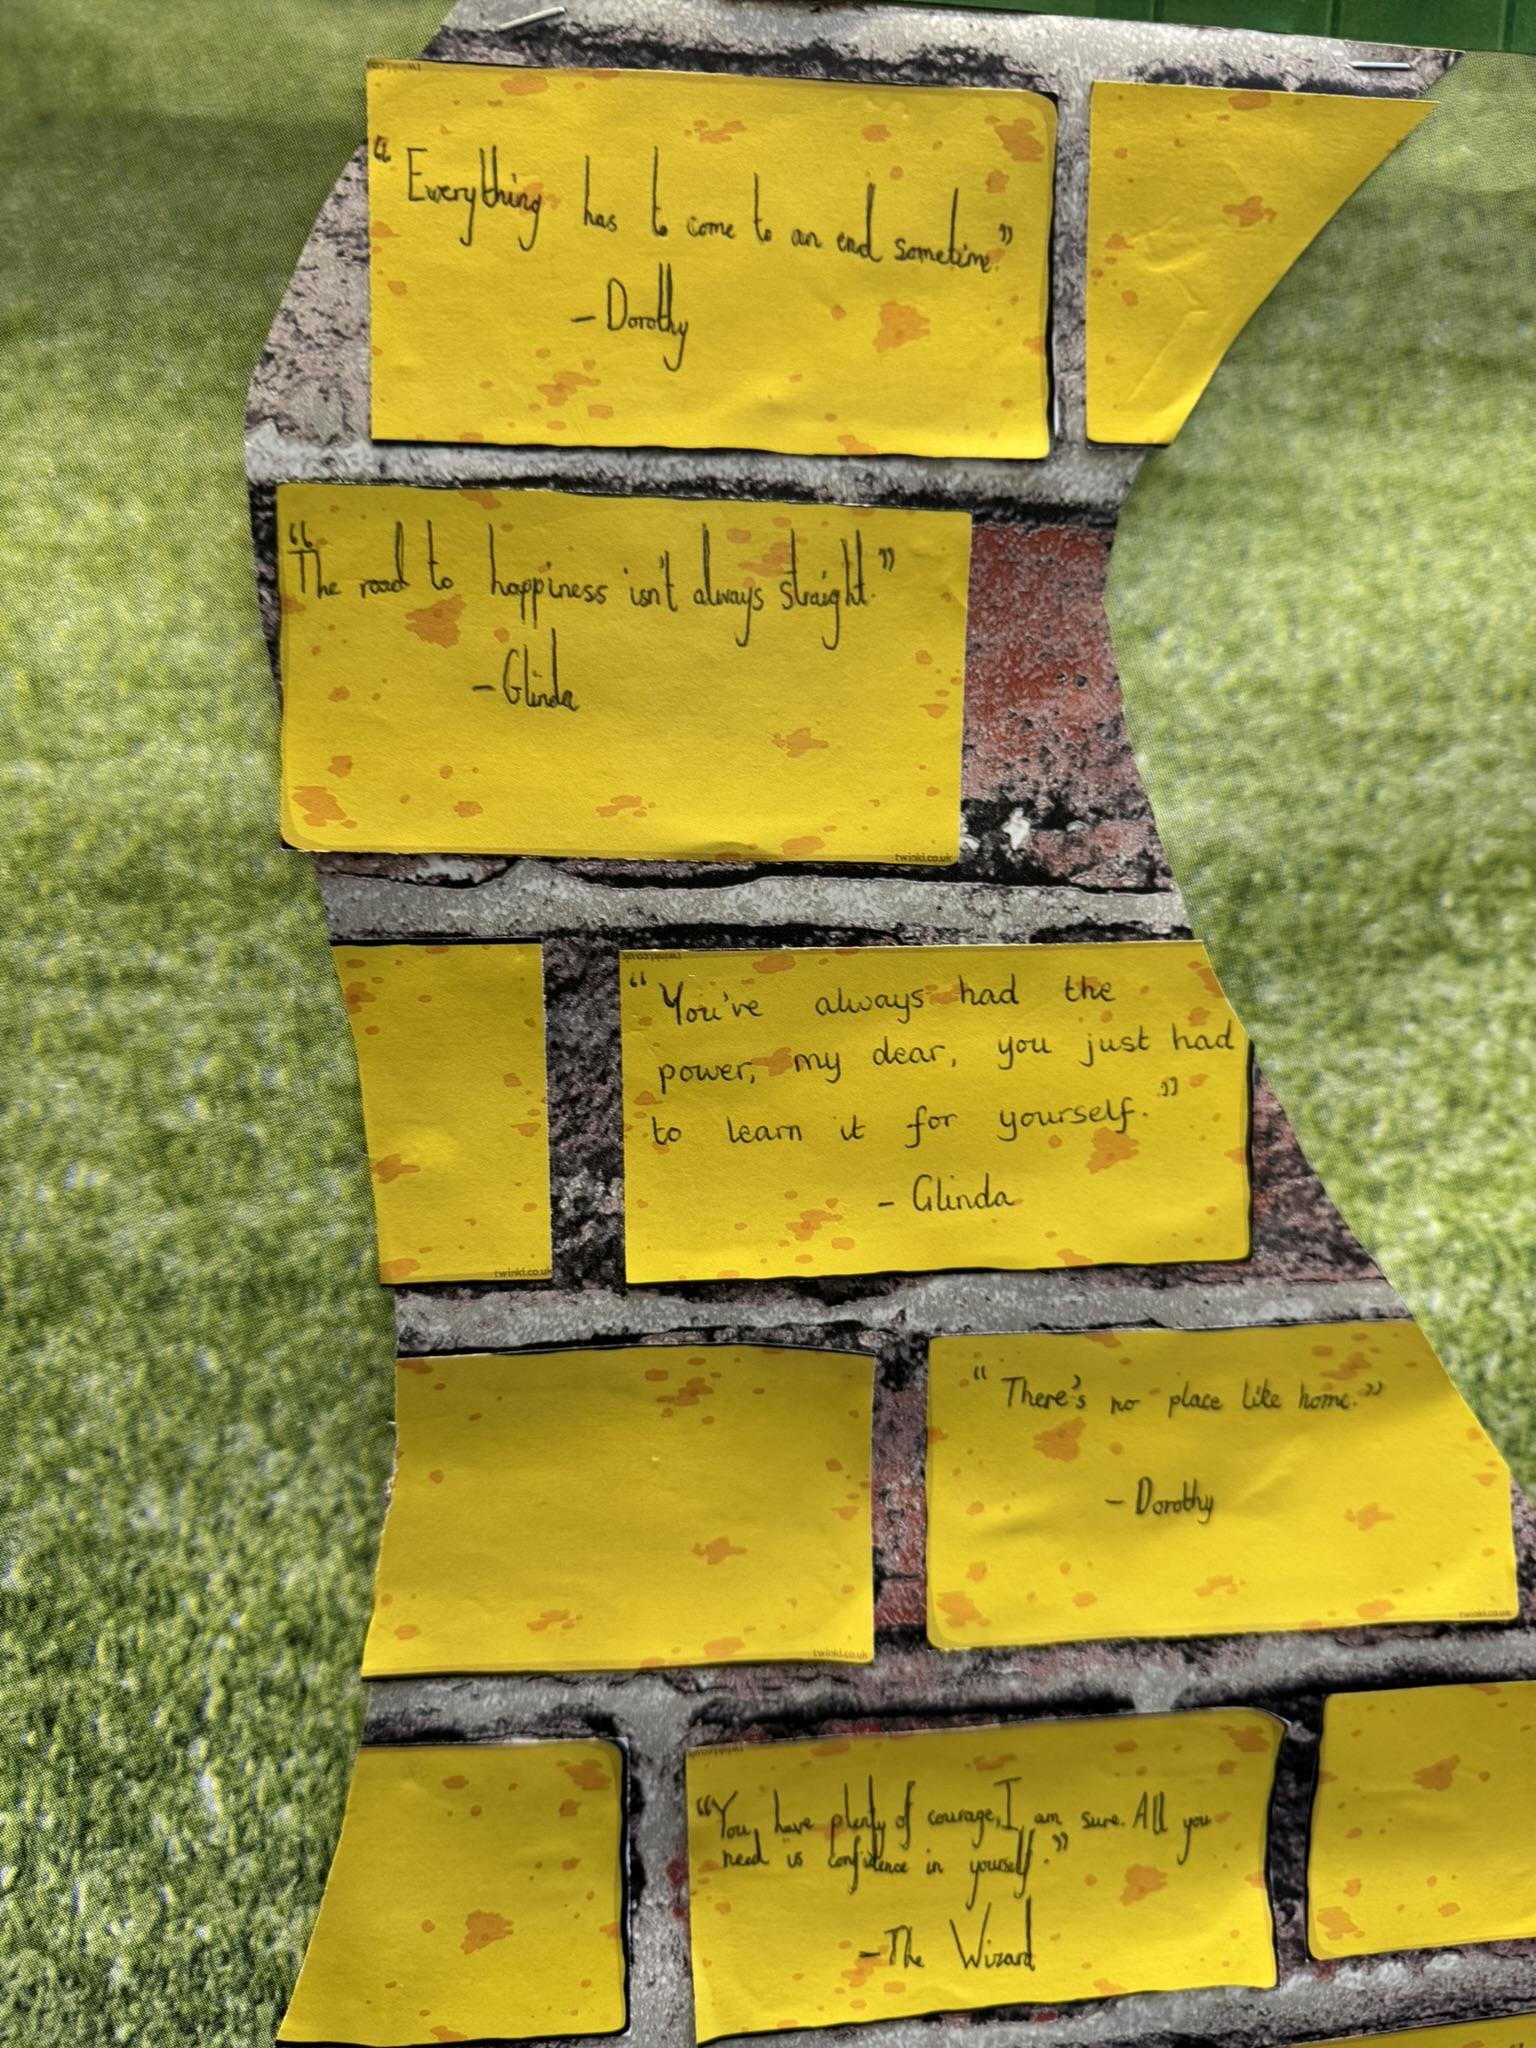 twinkl.co.uk
"Everything has to come to an end sometime."
- Dorothy
"The road to happiness isn't always straight."
- Glinda
twinkl.co.uk
twinkl.co.uk
"You've always had the
power, my dear, you just had
to learn it for yourself."
- Glinda
twinkl.co.uk
"There's no place like home."
- Dorothy
twinkl.co.uk
twinkl.co.uk
twinkl.co.uk
"You have plenty of courage, I am sure. All you
need is confidence in yourself."
- The Wizard